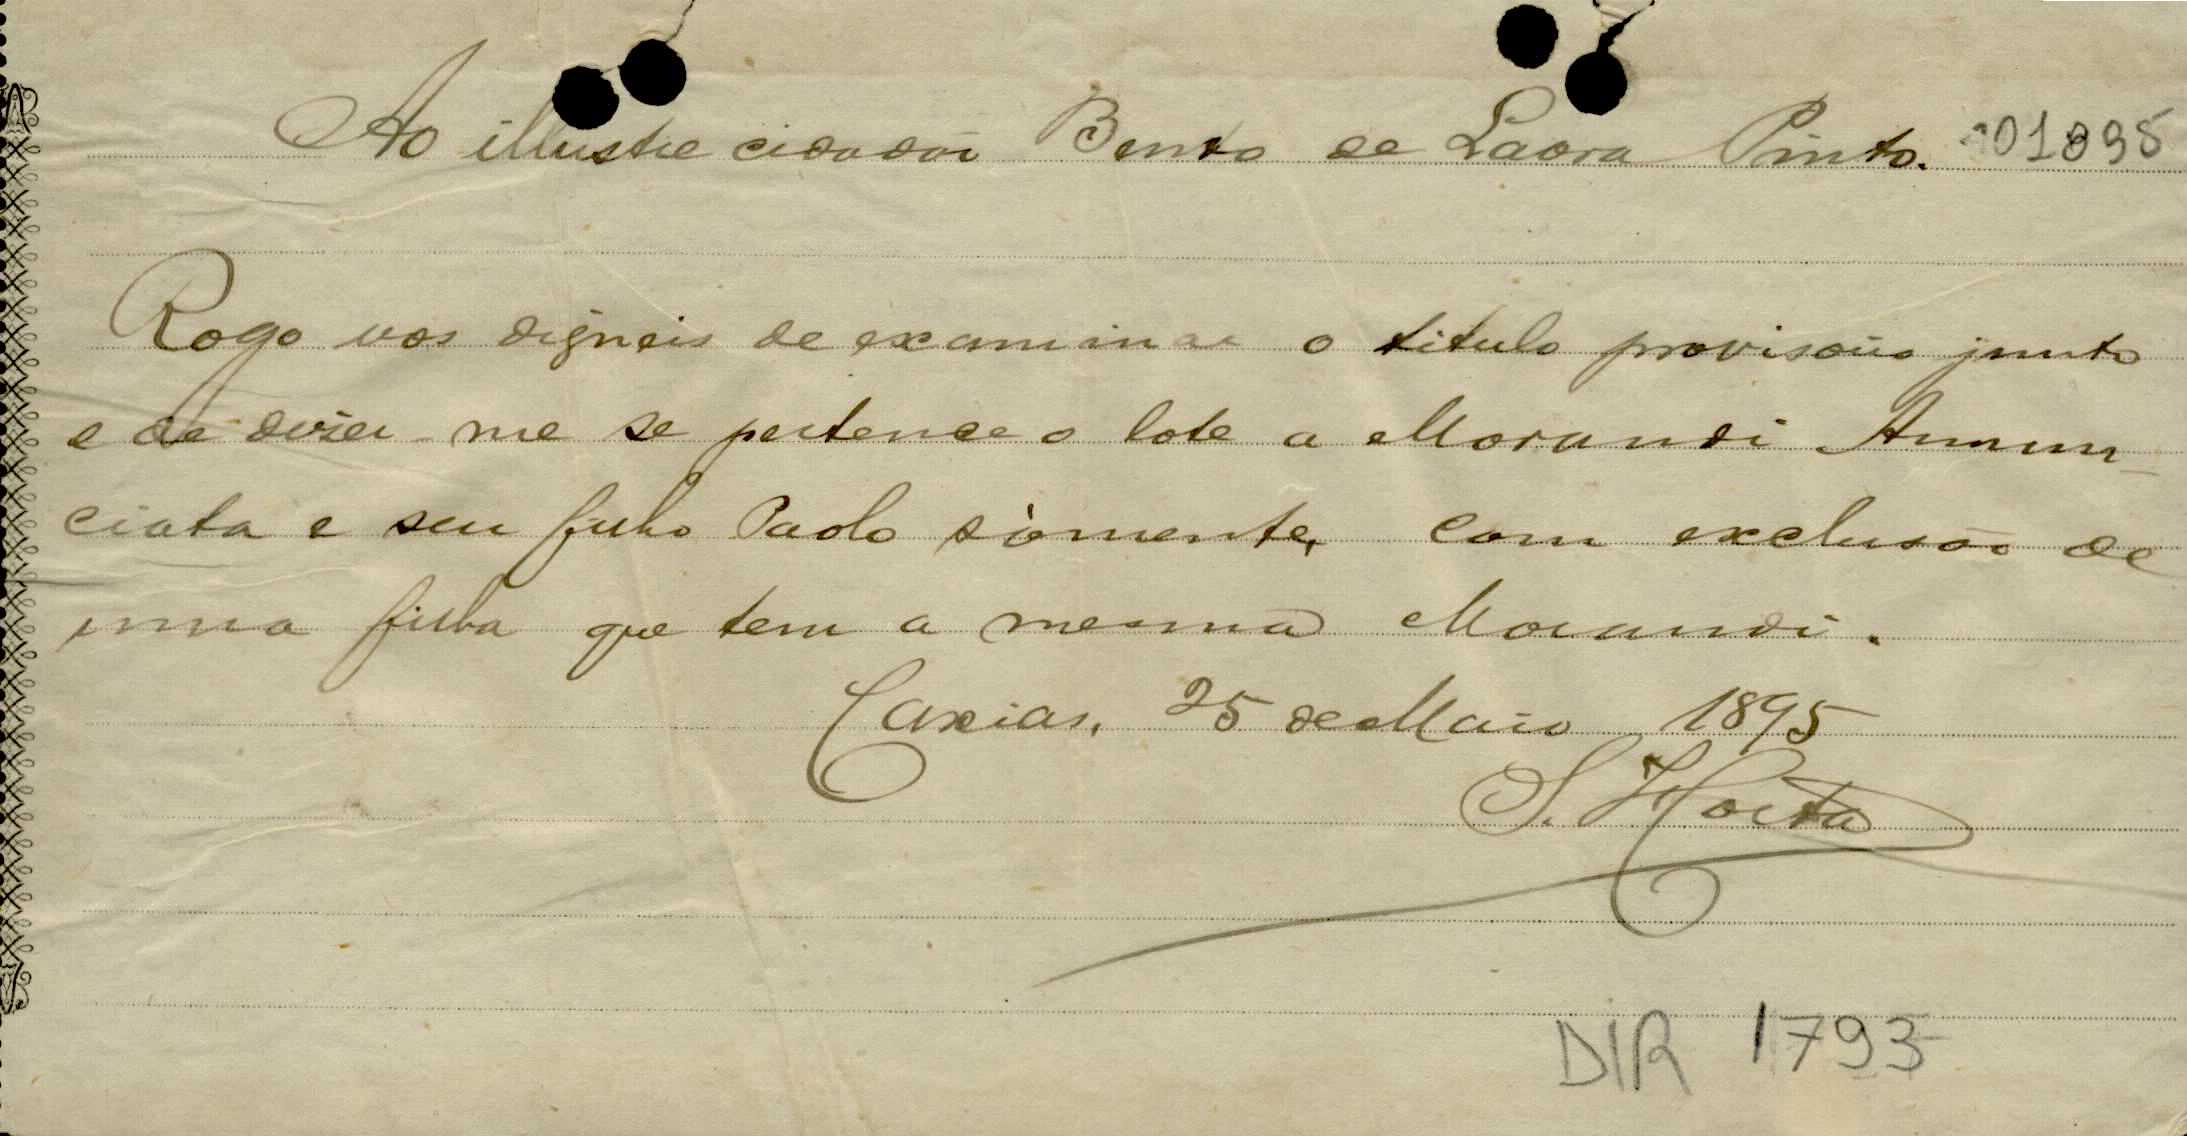 Ao illustre cidadão Bento de Lavra Pinto. 101895
Rogo vos digneis de examinar o titulo provisorio junto
e de dizer-me se pertence o lote a Morandi Annun-
ciata e seu filho Paolo sómente, com exclusão de
uma filha que tem a mesma Morandi.
Caxias, 25 de Maio 1895
S. Horta
DIR 1793